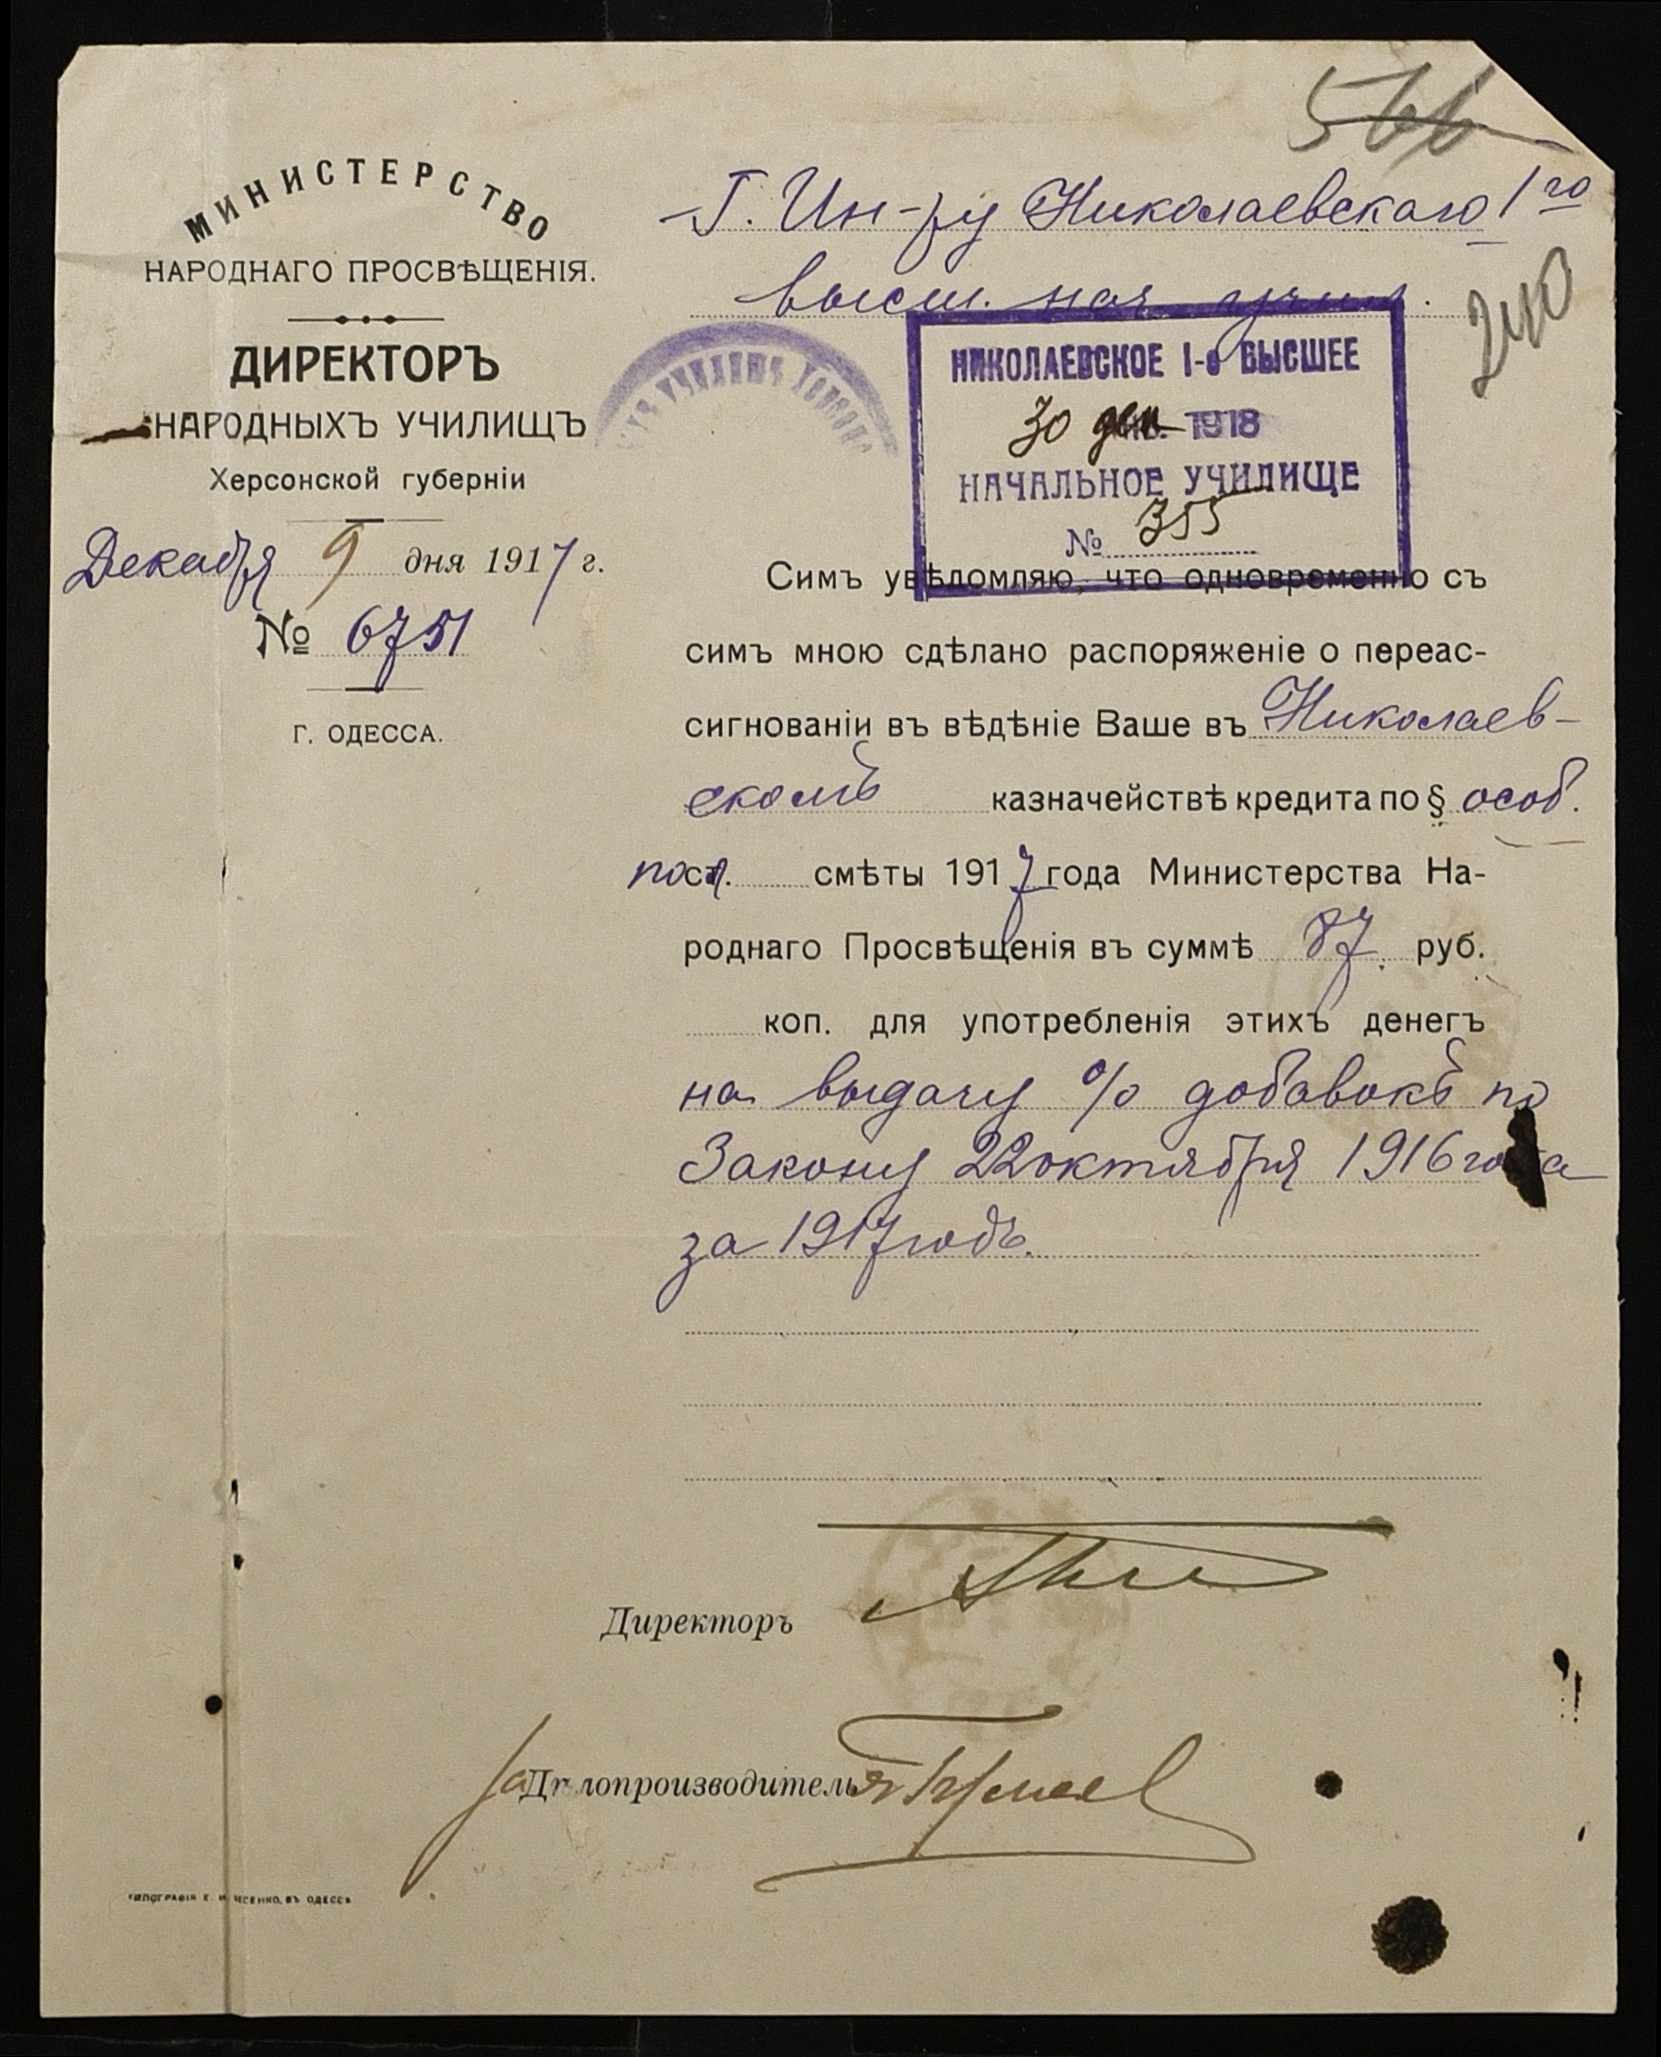 566
МИНИСТЕРСТВО
НАРОДНАГО ПРОСВѢЩЕНІЯ.
ДИРЕКТОРЪ
НАРОДНЫХЪ УЧИЛИЩЪ
Херсонской губерніи
Декабря 9 дня 1917 г.
№ 6751
Г. ОДЕССА.
Г. Ин-ру Николаевскаго 1го
высш. нач. учил.
240
НИКОЛАЕВСКОЕ 1-е ВЫСШЕЕ
30 дек 1918
НАЧАЛЬНОЕ УЧИЛИЩЕ
№ 355
Симъ увѣдомляю, что одновременно съ
симъ мною сдѣлано распоряженіе о переас-
сигнованіи въ вѣдѣніе Ваше въ Николаев-
скомъ казначействѣ кредита по § особ.
пост. смѣты 1917 года Министерства На-
роднаго Просвѣщенія въ суммѣ 87. руб.
коп. для употребленія этихъ денегъ
на выдачу % добавокъ по
Закону 22 октября 1916 года
за 1917 годъ.
Директоръ
за Дѣлопроизводителя
ТИПОГРАФІЯ Е. И. ВЪ ОДЕССѢ